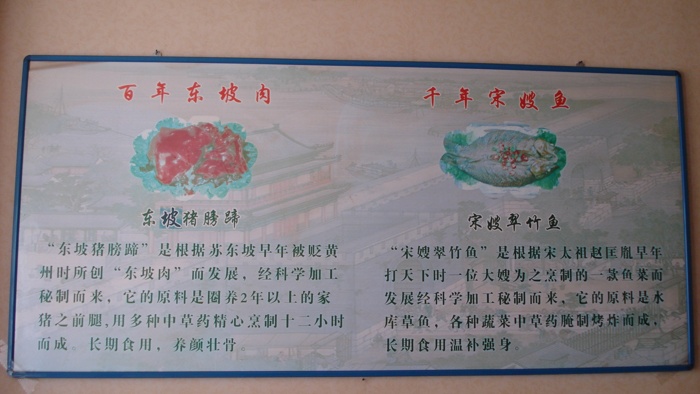 百年东坡肉
东坡猪膀蹄
“东坡猪膀蹄”是根据苏东坡早年被贬黄
州时所创“东坡肉”而发展，经科学加工
秘制而来，它的原料是圈养2年以上的家
猪之前腿，用多种中草药精心烹制十二小时
而成。长期食用，养颜壮骨。
千年宋嫂鱼
宋嫂翠竹鱼
“宋嫂翠竹鱼”是根据宋太祖赵匡胤早年
打天下时一位大嫂为之烹制的一款鱼菜而
发展经科学加工秘制而来，它的原料是水
库草鱼，各种蔬菜中草药腌制烤炸而成，
长期食用温补强身。